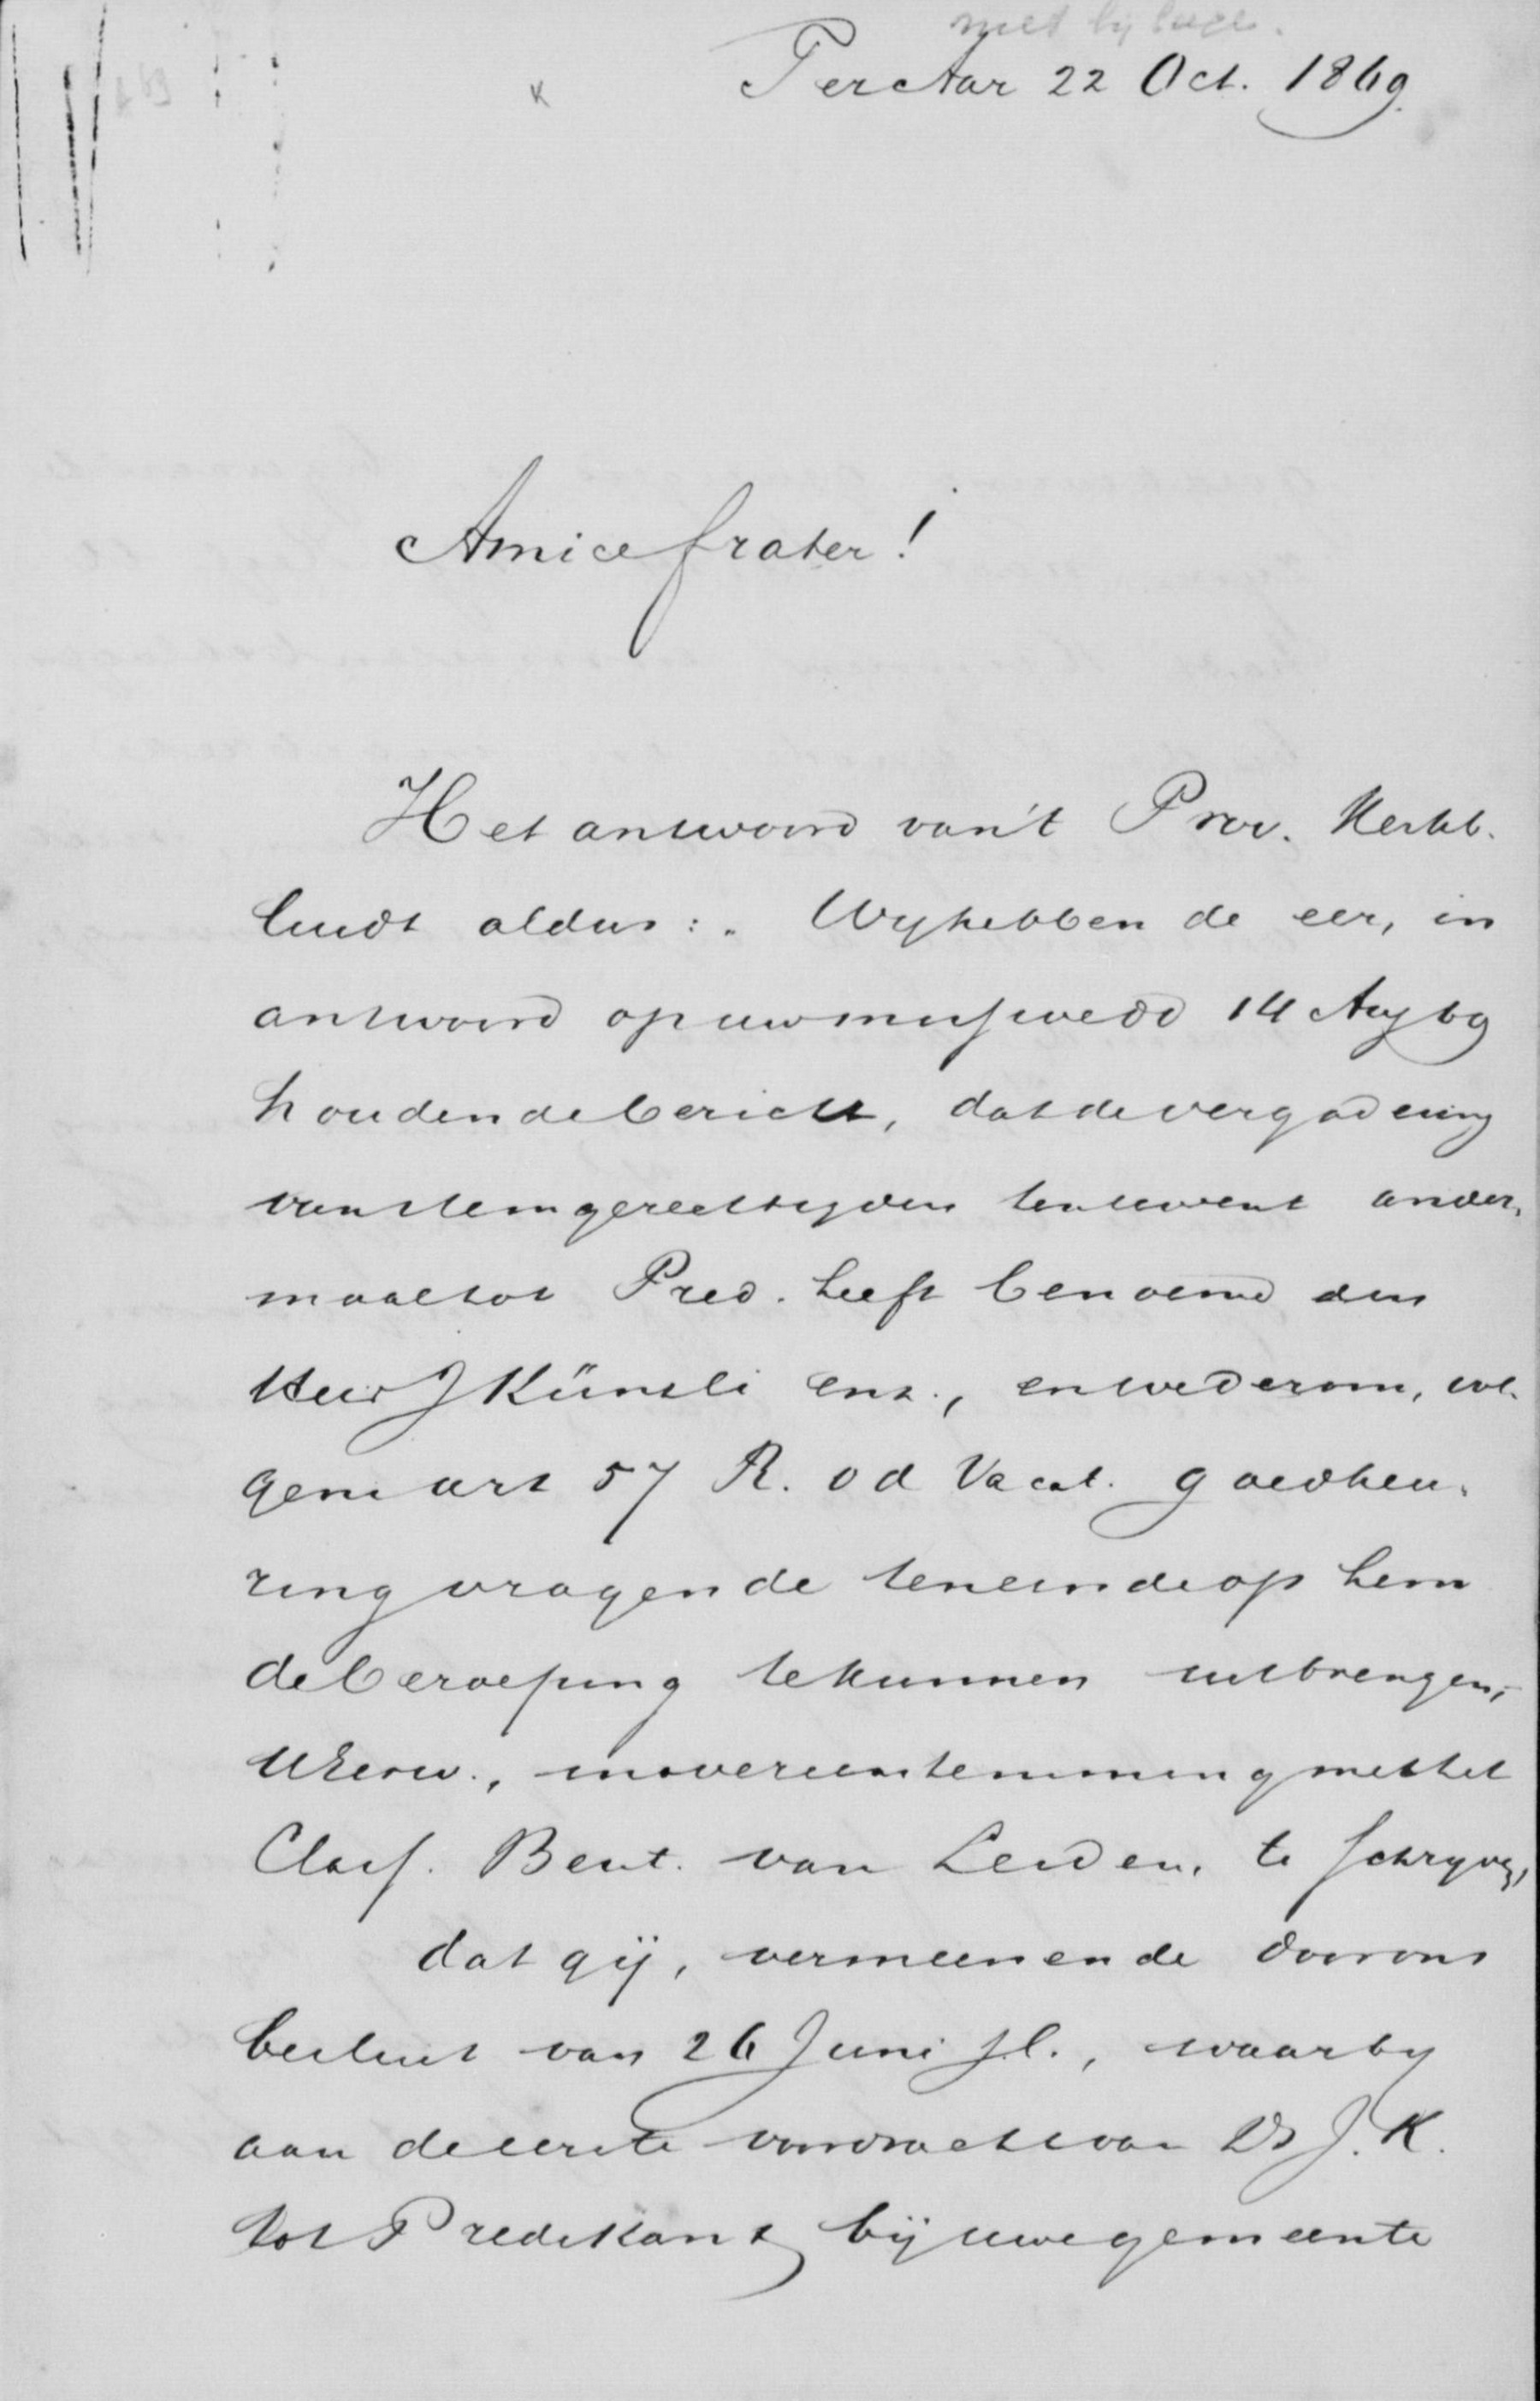 met bijlage.
Ter Aar 22 Oct. 1869.
Amice frater!
Het antwoord van 't Prov. Kerkb.
luidt aldus: „ Wy hebben de eer, in
antwoord op uw missive dd 14 Aug 69
houdende bericht, dat de vergadering
van stemgerechtigden ten uwent ander-
maal tot Pred. heeft benoemd den
Heer J Künzli enz., en wederom, vol-
gens art 57 R. o d Vacat. goedkeu-
ring vragende teneinde op hem
de beroeping te kunnen uitbrengen,
UEerw., in overeenstemming met het
Class. Best. van Leiden, te schryven,
dat gij, vermeenende door ons
besluit van 26 Juni j.l., waarby
aan de eerste voordracht van Ds J. K.
tot Predikant bij uwe gemeente